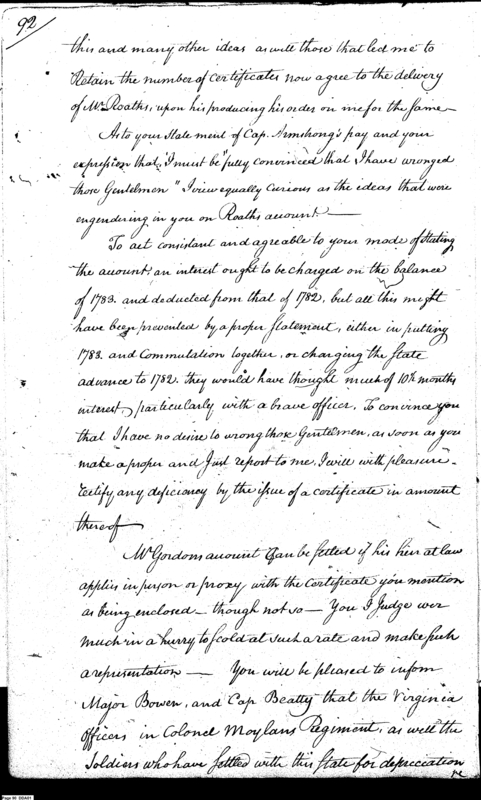 92
this and many other ideas as well those that led me to
Retain the number of certificates now agree to the delivery
of Mr Roaths, upon his producing his order on me for the same—
As to your Statement of Cap. Armstrong's pay and your
expression that, I must be "fully convinced that I have wronged
those Gentelmen" I view equally Curious as the ideas that were
engendering in you on Roaths account.—
To act consistant and agreeable to your mode of Stating
the account, an interest ought to be charged on the balance
of 1783. and deducted from that of 1782, but all this might
have been prevented by a proper Statement, either in putting
1783. and Commutation together, or charging the State
advance to 1782. they would have thought much of 10½ months
interest, particularly with a brave officer. To convince you
that I have no desire to wrong those Gentelmen, as soon as you
make a proper and Just report to me, I will with pleasure-
Certify any deficiency by the issue of a certificate in amount
thereof
Mr Gordons account Can be settled if his heir at law
applies in person or proxy with the Certificate you mention
as being enclosed— though not so— You I Judge wer
much in a hurry to scold at such a rate and make such
a representation — You will be pleased to inform
Major Bowen, and Cap Beatty that the Virginia
officers in Colonel Moylans Regiment, as well the
Soldiers who have settled with this State for depreciation
Page 90 DDA01